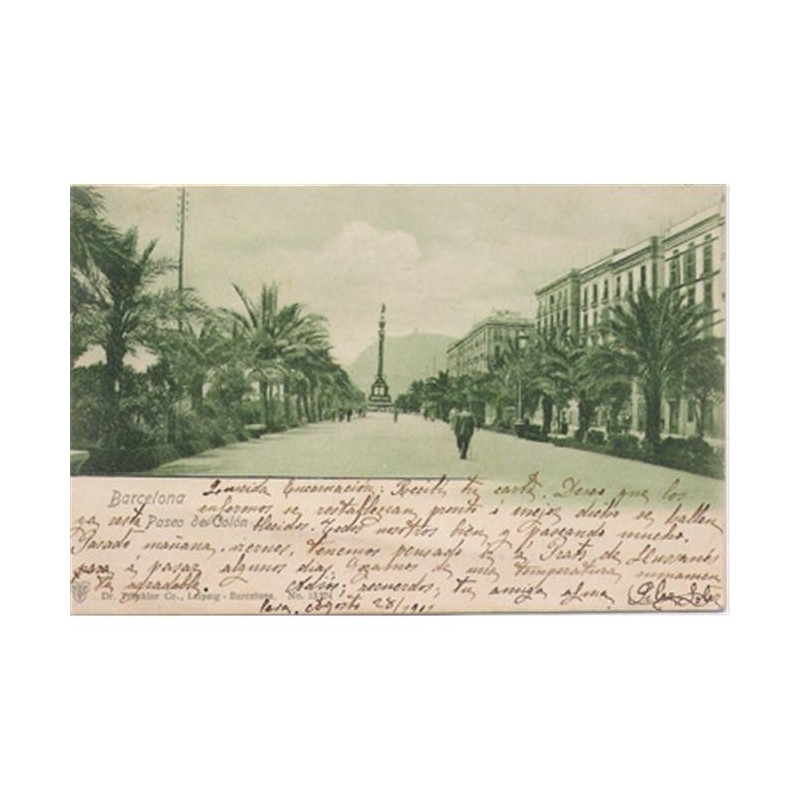 Barcelona
Paseo de Colón
Querida Encarnación: Recibí tu carta. Deseo que los
enfermos se restablezcan pronto ó mejor dicho se hallen
ya resta
blecidos. Todos nosotros bien y Paseando mucho.
Pasado mañana, viernes, tenemos pensado ir á Prats de Llussanés
para á pasar algunos dias. Gozamos de una temperatura sumamen
te agradable. Adios; recuerdos; tu amiga
Agosto 28/
Dr. Co., Leipzig - Barcelona. No.